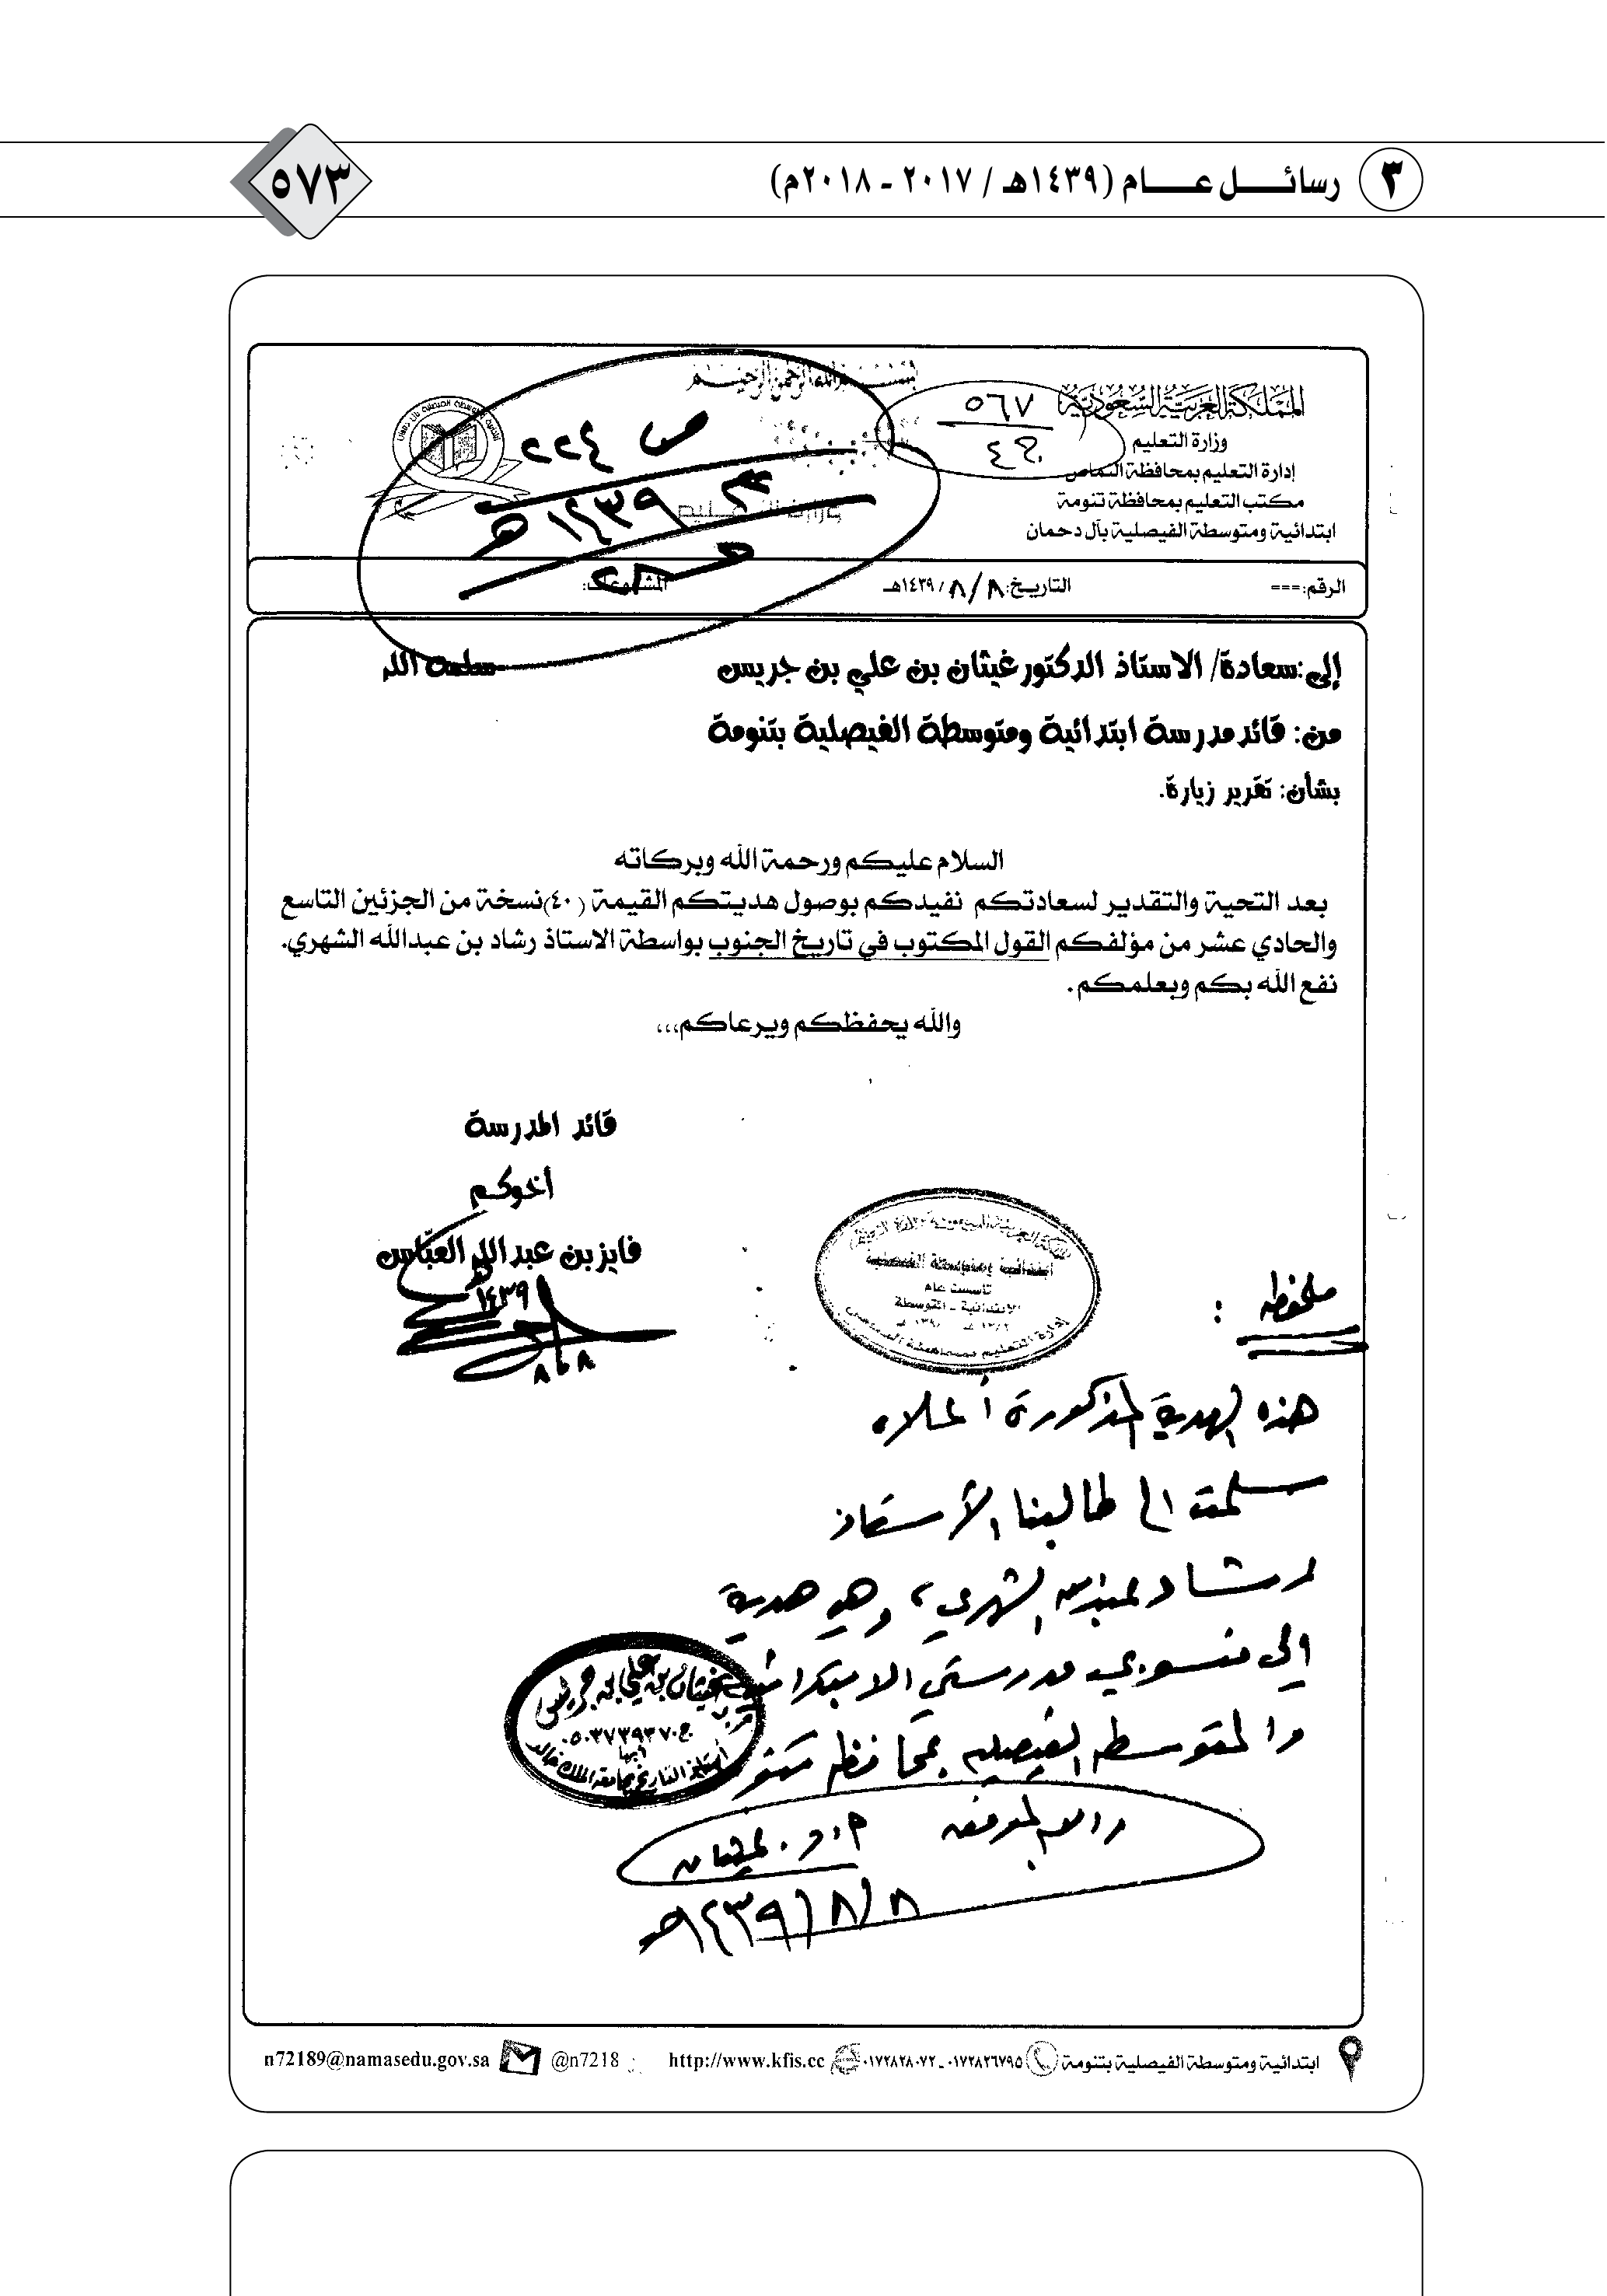 ٣ رسائل عام (١٤٣٩هـ / ٢٠١٧ - ٢٠١٨م)
٥٧٣
بسم الله الرحمن الرحيم
المملكة العربية السعودية
وزارة التعليم
إدارة التعليم بمحافظة النماص
مكتب التعليم بمحافظة تنومة
ابتدائية ومتوسطة الفيصلية بآل دحمان
٥٦٧
ص ٢٢٤
١٤٣٩هـ
وزارة التعليم
الرقم:=== التاريخ: ٨/ ٨ / ١٤٣٩هـ المشفوعات:
إلى:سعادة/ الاستاذ الدكتور غيثان بن علي بن جريس سلمه الله
من: قائد مدرسة ابتدائية ومتوسطة الفيصلية بتنومة
بشأن: تقرير زيارة.
السلام عليكم ورحمة الله وبركاته
بعد التحية والتقدير لسعادتكم نفيدكم بوصول هديتكم القيمة (٤٠)نسخة من الجزئين التاسع
والحادي عشر من مؤلفكم القول المكتوب في تاريخ الجنوب بواسطة الاستاذ رشاد بن عبدالله الشهري.
نفع الله بكم وبعلمكم.
والله يحفظكم ويرعاكم،،،
قائد المدرسة
أخوكم
فايز بن عبد الله العباس
١٤٣٩
٨ ٨
ابتدائية ومتوسطة الفيصلية
تأسست عام
الإبتدائية - المتوسطة
إدارة التعليم بمحافظة النماص
ملحوظة :
هذه الهدية المذكورة أعلاه
سلمت إلى طالبنا الأستاذ
رشاد عبدالله الشهري، وهي هدية
إلى منسوبي مدرستي الابتدائية
والمتوسطة الفيصلية بمحافظة تنومة
والله الموفق أ.د. غيثان
٨/٨/١٤٣٩هـ
غيثان بن علي بن جريس
ج٠٥٠٣٧٣٩٣٧٠
أبها
أستاذ التاريخ بجامعة الملك خالد
ابتدائية ومتوسطة الفيصلية بتنومة ٠١٧٢٨٢٦٧٩٥ـ٠١٧٢٨٢٨٠٧٢ http://www.kfis.cc @n7218 n72189@namasedu.gov.sa